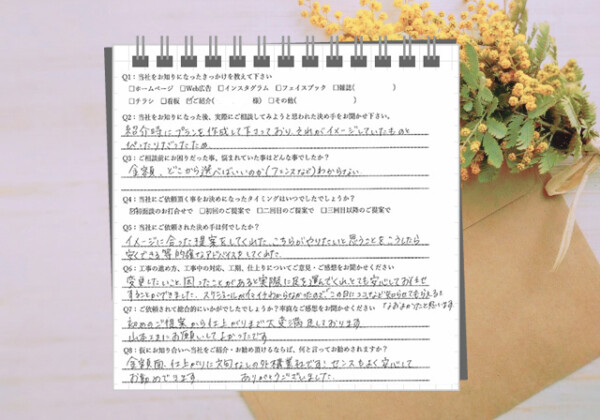 Q1：当社をお知りになったきっかけを教えて下さい
□ホームページ □Web広告 □インスタグラム □フェイスブック □雑誌( )
□チラシ □看板 ☑ご紹介( 様) □その他( )
Q2：当社をお知りになった後、実際にご相談してみようと思われた決め手をお聞かせ下さい。
紹介時にプランを作成して下さっており、それがイメージしていたものと
ぴったりだったため
Q3：ご相談前にお困りだった事、悩まれていた事はどんな事でしたか？
金額、どこから選べばいいのか(フェンスなど)わからない
Q4：当社にご依頼頂く事をお決めになったタイミングはいつでしたでしょうか？
☑初面談のお打合せで □初回のご提案で □二回目のご提案で □三回目以降のご提案で
Q5：当社にご依頼された決め手は何でしたか？
イメージに合った提案をしてくれた、こちらがやりたいと思うことをこうしたら
安くできる等的確なアドバイスをしてくれた。
Q6：工事の進め方、工事中の対応、工期、仕上りについてご意見・ご感想をお聞かせください
変更したいこと、困ったことがあると実際に足を運んでくれとても安心しておまかせ
することができました。スケジュールがイマイチわからなかったので、この日にココなど知らせてもらえると
なおよかったと思います
Q7：ご依頼されて総合的にいかがでしたでしょうか？率直なご感想をお聞かせください
初めのご提案から仕上がりまで大変満足しております
山本さまにお願いしてよかったです
Q8：仮にお知り合いへ当社をご紹介・お勧め頂けるならば、何と言ってお勧めされますか？
金額面、仕上がりに文句なしの外構業社です！センスもよく安心して
お勧めできます。 ありがとうございました。